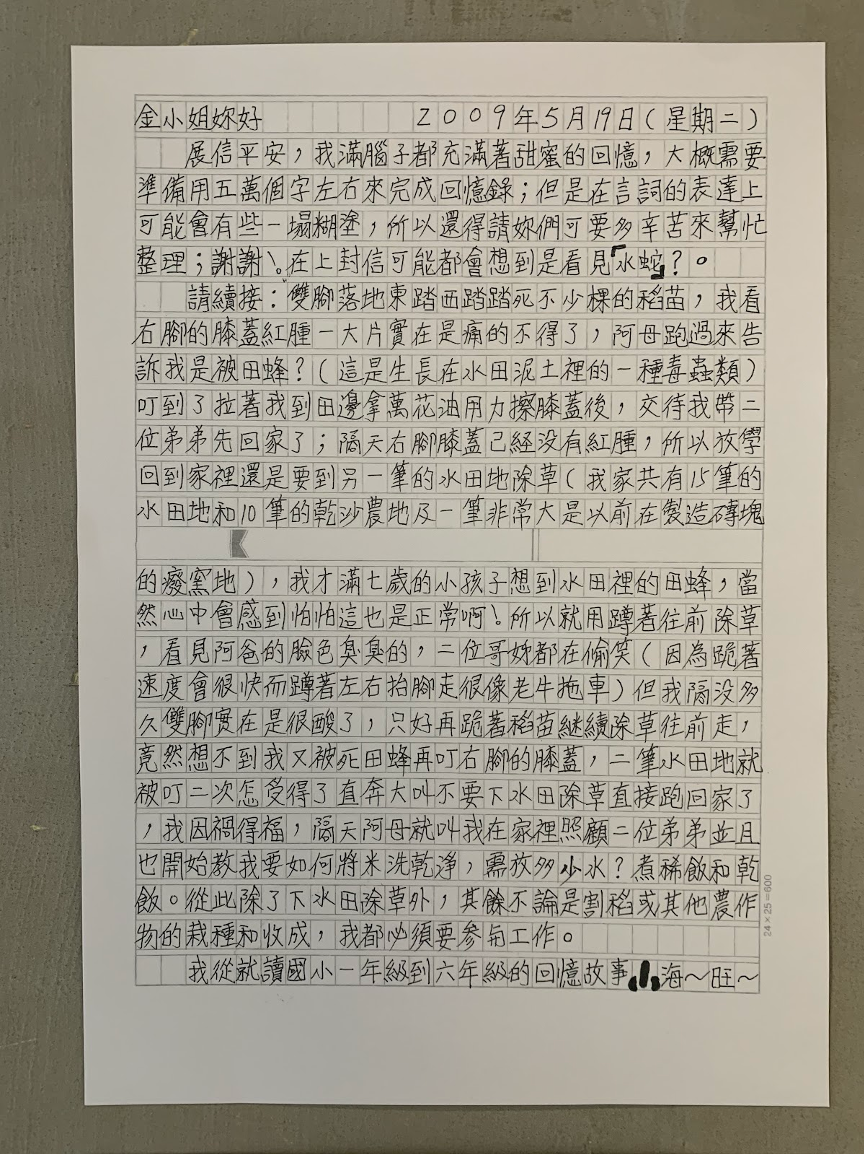 金小姐妳好 2009年5月19日(星期二)
展信平安，我滿腦子都充滿著甜蜜的回憶，大概需要
準備用五萬個字左右來完成回憶錄；但是在言詞的表達上
可能會有些一塌糊塗，所以還得請妳們可要多辛苦來幫忙
整理；謝謝!。在上封信可能都會想到是看見「水蛇」？。
請續接：雙腳落地東踏西踏踏死不少棵的稻苗，我看
右腳的膝蓋紅腫一大片實在是痛的不得了，阿母跑過來告
訴我是被田蜂？(這是生長在水田泥土裡的一種毒蟲類)
叮到了拉著我到田邊拿萬花油用力擦膝蓋後，交待我帶二
位弟弟先回家了；隔天右腳膝蓋已經没有紅腫，所以放學
回到家裡還是要到另一筆的水田地除草(我家共有15筆的
水田地和10筆的乾沙農地及一筆非常大是以前在製造磚塊
的癈窯地)，我才滿七歲的小孩子想到水田裡的田蜂，當
然心中會感到怕怕這也是正常啊!所以就用蹲著往前除草
，看見阿爸的臉色臭臭的，二位哥妳都在偷笑(因為跪著
速度會很快而蹲著左右抬腳走很像老牛拖車)但我隔没多
久雙腳實在是很酸了，只好再跪著稻苗継續除草往前走，
竟然想不到我又被死田蜂再叮右腳的膝蓋，二筆水田地就
被叮二次怎受得了直奔大叫不要下水田除草直接跑回家了
，我因禍得福，隔天阿母就叫我在家裡照顧二位弟弟並且
也開始教我要如何將米洗乾淨，需放多少水？煮稀飯和乾
飯。從此除了下水田除草外，其餘不論是割稻或其他農作
物的栽種和收成，我都必須要參與工作。
我從就讀國小一年級到六年級的回憶故事 海～旺～
24×25=600